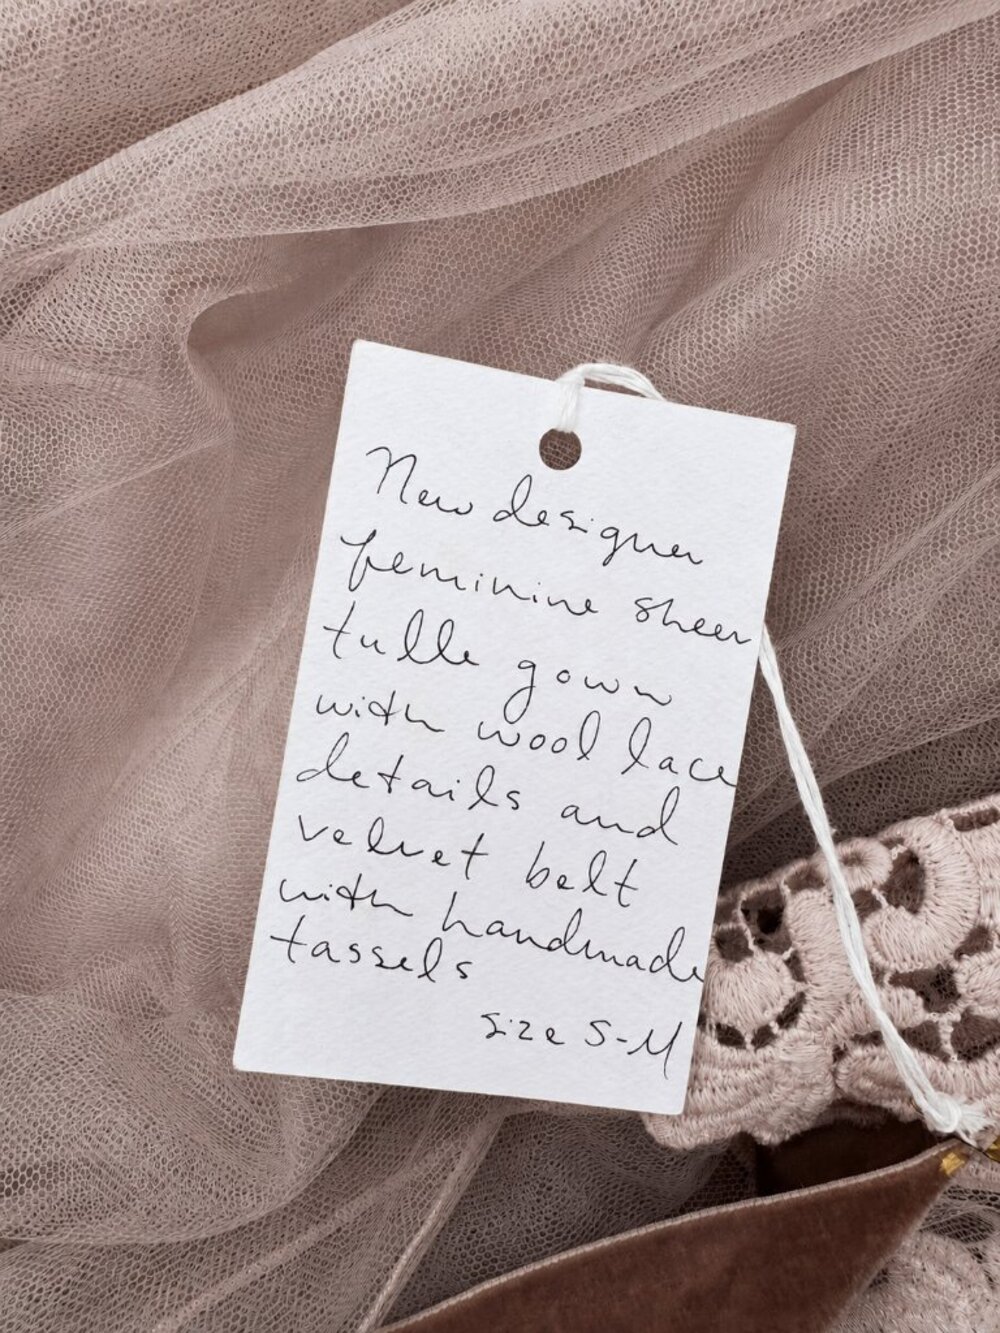 New designer
feminine sheer
tulle gown
with wool lace
details and
velvet belt
with handmade
tassels
size S-M